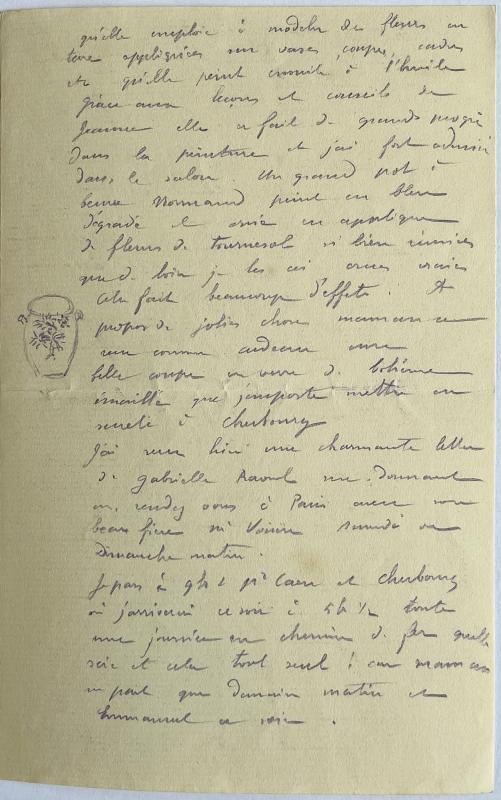 qu'elle emploie à modeler des fleurs en
terre appliquées sur vases, coupes, cadres
et qu'elle peint ensuite à l'huile
grâce aux leçons et conseils de
Jeanne elle a fait de grands progrès
dans la peinture et j'ai fort admiré
dans le salon. Un grand pot à
beurre Normand peint en bleu
dégradé et orné en applique
de fleurs de tournesol si bien réussies
que de loin je les ai crues vraies
cela fait beaucoup d'effet. A
propos de jolies choses maman a
reçu comme cadeau une
belle coupe en verre de bohême
émaillé que j'emporte mettre en
sureté à Cherbourg
J'ai reçu hier une charmante lettre
de Gabrielle Raoul me donnant
un rendez vous à Paris avec son
beau frère Mr Voisin samedi ou
Dimanche matin.
Je pars à 9h ½ pr Caen et Cherbourg
où j'arriverai ce soir à 5h ½ toute
une journée en chemin de fer quelle
scie et cela tout seul ! car maman
ne part que demain matin et
Emmanuel ce soir.